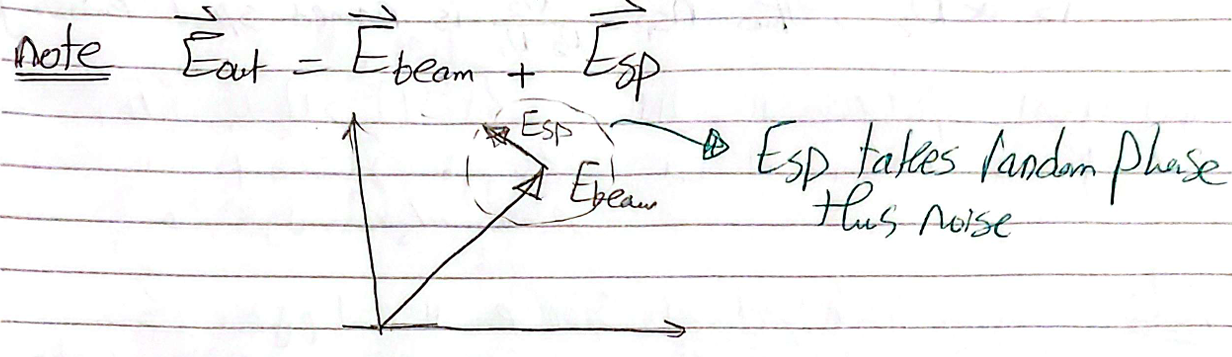 note E⃗out = E⃗beam + E⃗sp
Esp
Ebeam
Esp takes random phase
thus noise